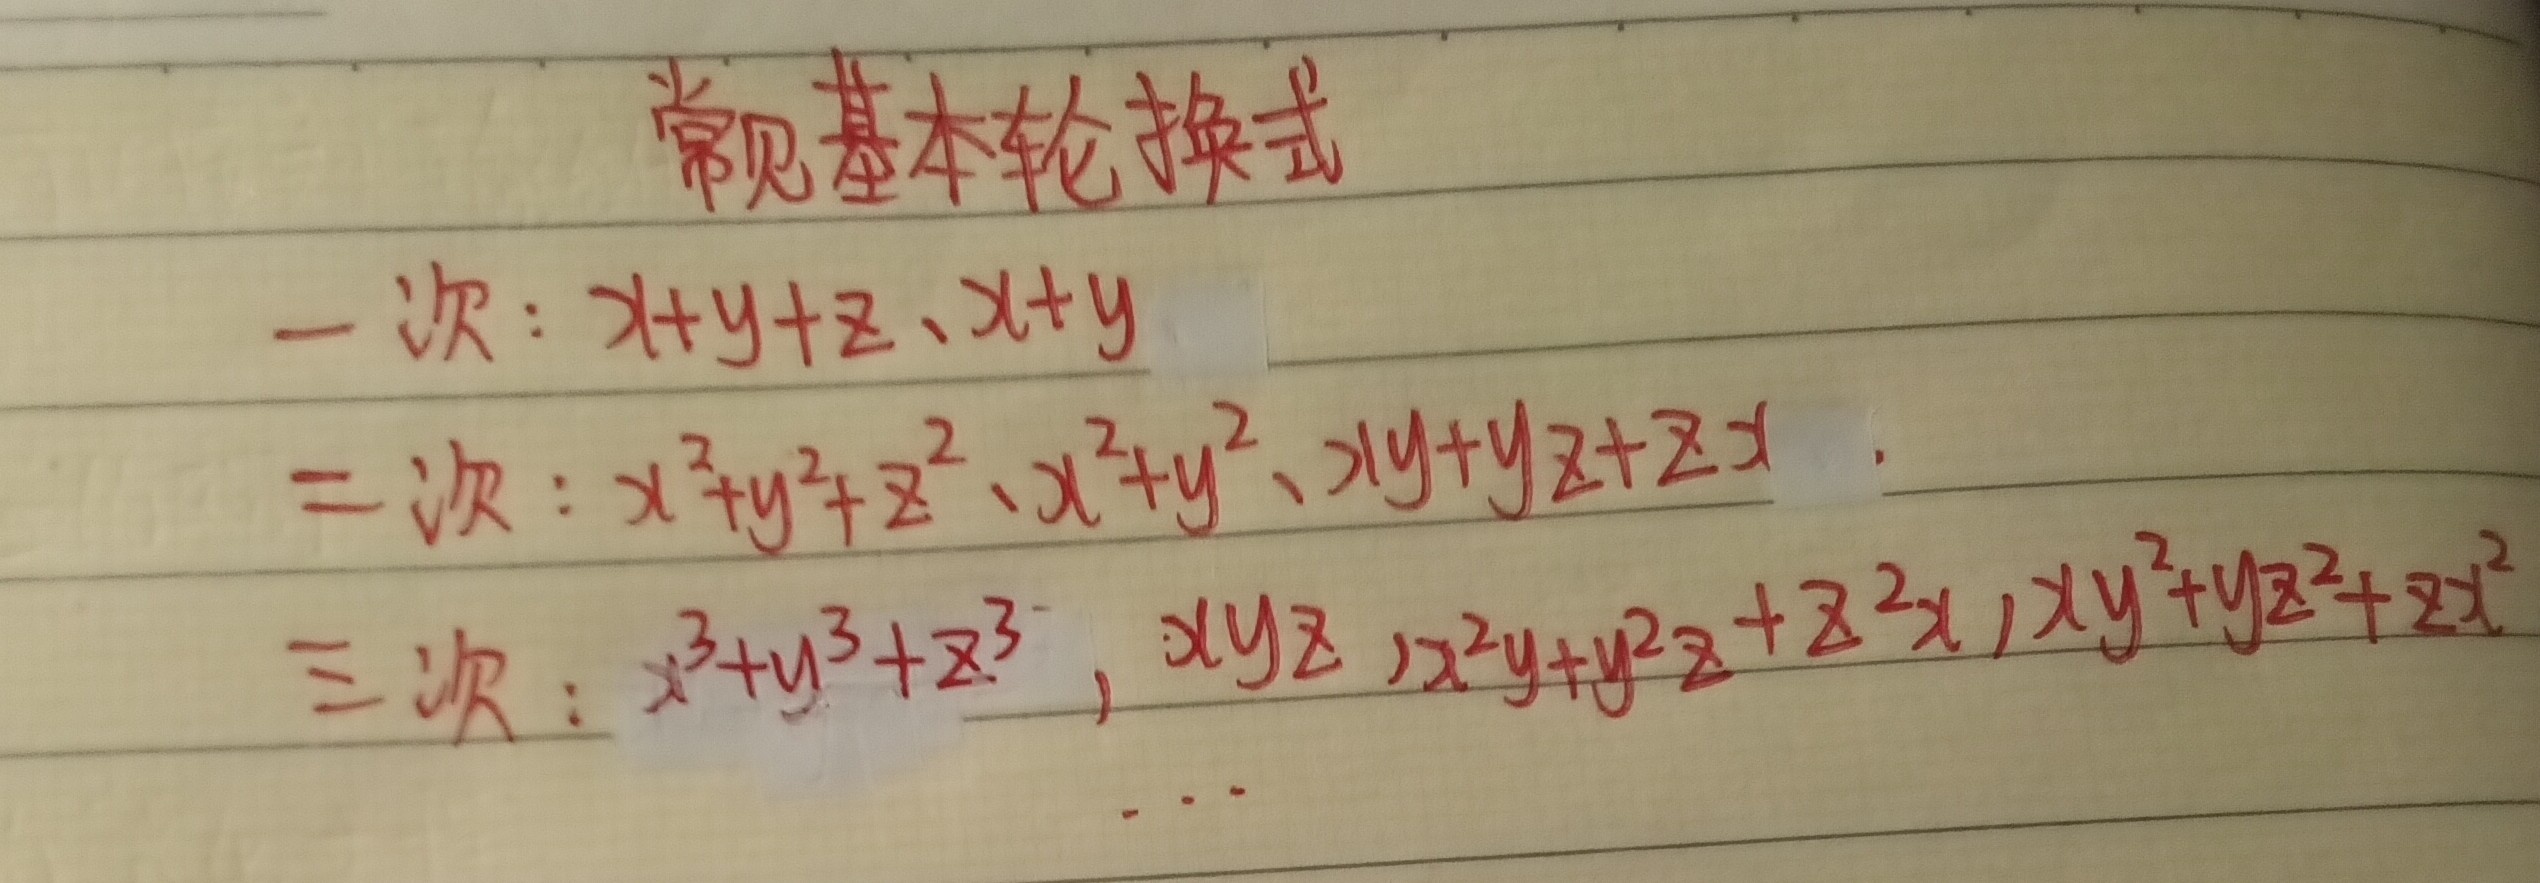 常见基本轮换式
一次：x+y+z、x+y
二次：x²+y²+z²、x²+y²、xy+yz+zx.
三次：x³+y³+z³，xyz，x²y+y²z+z²x，xy²+yz²+zx²
...